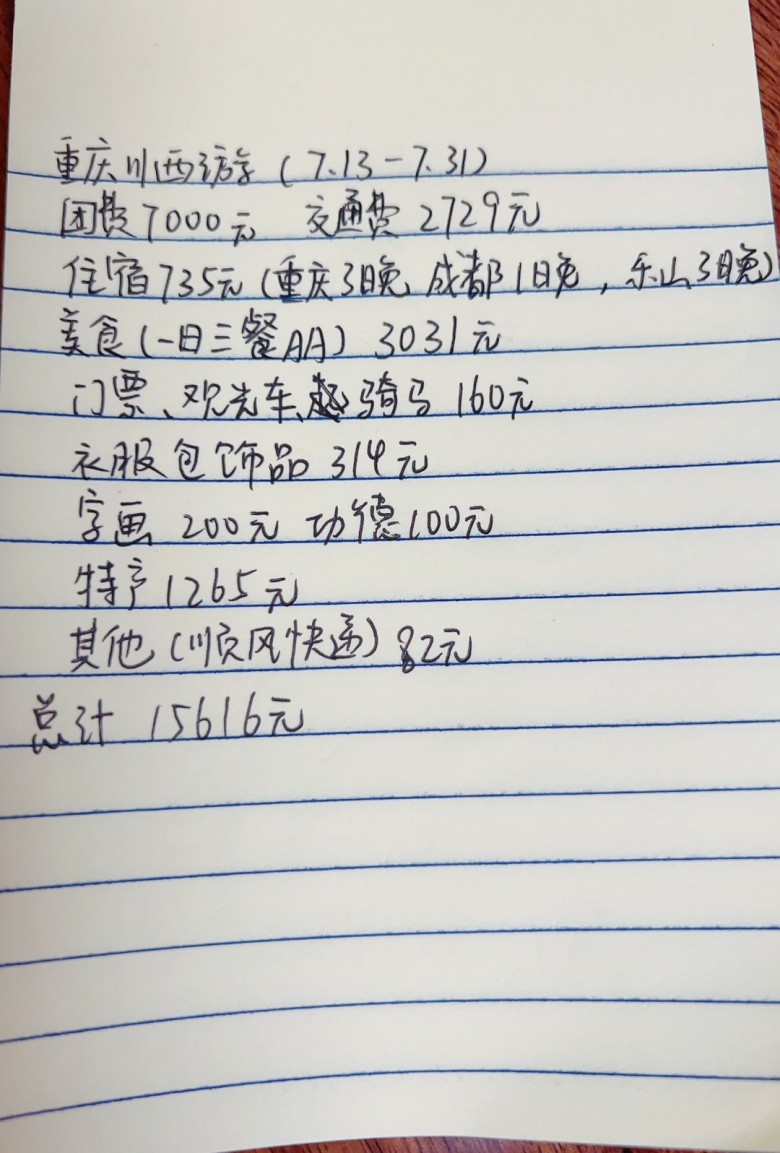 重庆川西游 (7.13-7.31)
团费7000元 交通费 2729元
住宿735元(重庆3晚 成都1晚, 乐山3晚)
美食(一日三餐AA) 3031元
门票、观光车、骑马 160元
衣服包饰品 314元
字画 200元 功德100元
特产1265元
其他(顺风快递) 82元
总计 15616元